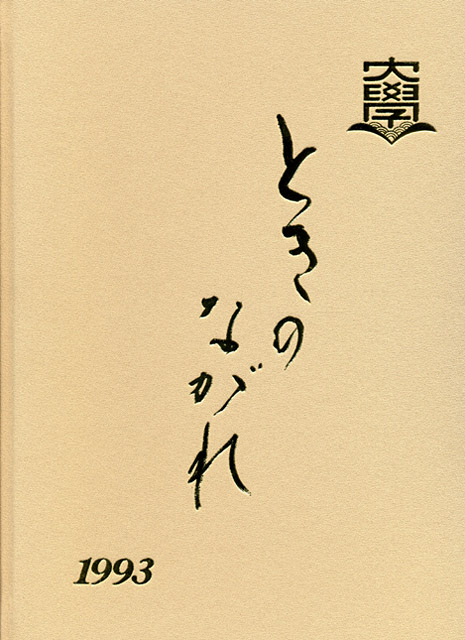 大學
ときの
ながれ
1993